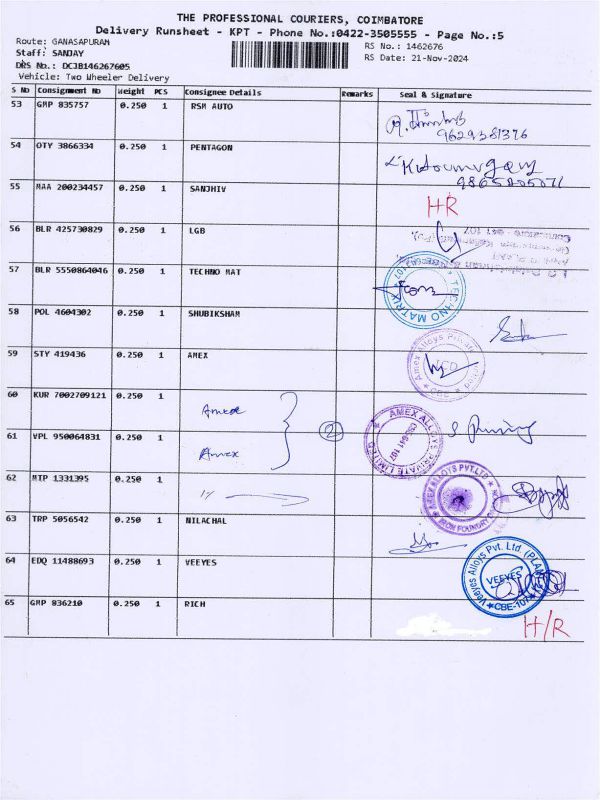 THE PROFESSIONAL COURIERS, COIMBATORE
Delivery Runsheet - KPT - Phone No.:0422-3505555 - Page No.:5
Route: GANASAPURAM
RS No.: 1462676
Staff: SANJAY
RS Date: 21-Nov-2024
DRS No.: DCJB146267605
Vehicle: Two Wheeler Delivery
S No Consignment No Weight PCS Consignee Details Remarks Seal & Signature
53 GMP 835757 0.250 1 RSM AUTO
9629381376
54 OTY 3866334 0.250 1 PENTAGON
9865205071
55 MAA 200234457 0.250 1 SANJHIV
HR
56 BLR 425730829 0.250 1 LGB
57 BLR 5550864046 0.250 1 TECHNO MAT
TECHNO MATRIX
58 POL 4604302 0.250 1 SHUBIKSHAM
59 STY 419436 0.250 1 AMEX
Amex Alloys Private
CBE
60 KUR 7002709121 0.250 1
2
AMEX ALLOYS PRIVATE LIMITED
641 107
61 VPL 950064831 0.250 1 Amex
62 MTP 1331395 0.250 1
AMEX ALLOYS PVT.LTD
IRON FOUNDRY
63 TRP 5056542 0.250 1 NILACHAL
64 EDQ 11488693 0.250 1 VEEYES
Veeyes Alloys Pvt. Ltd.
VEEYES
CBE-107
65 GMP 836210 0.250 1 RICH
H/R